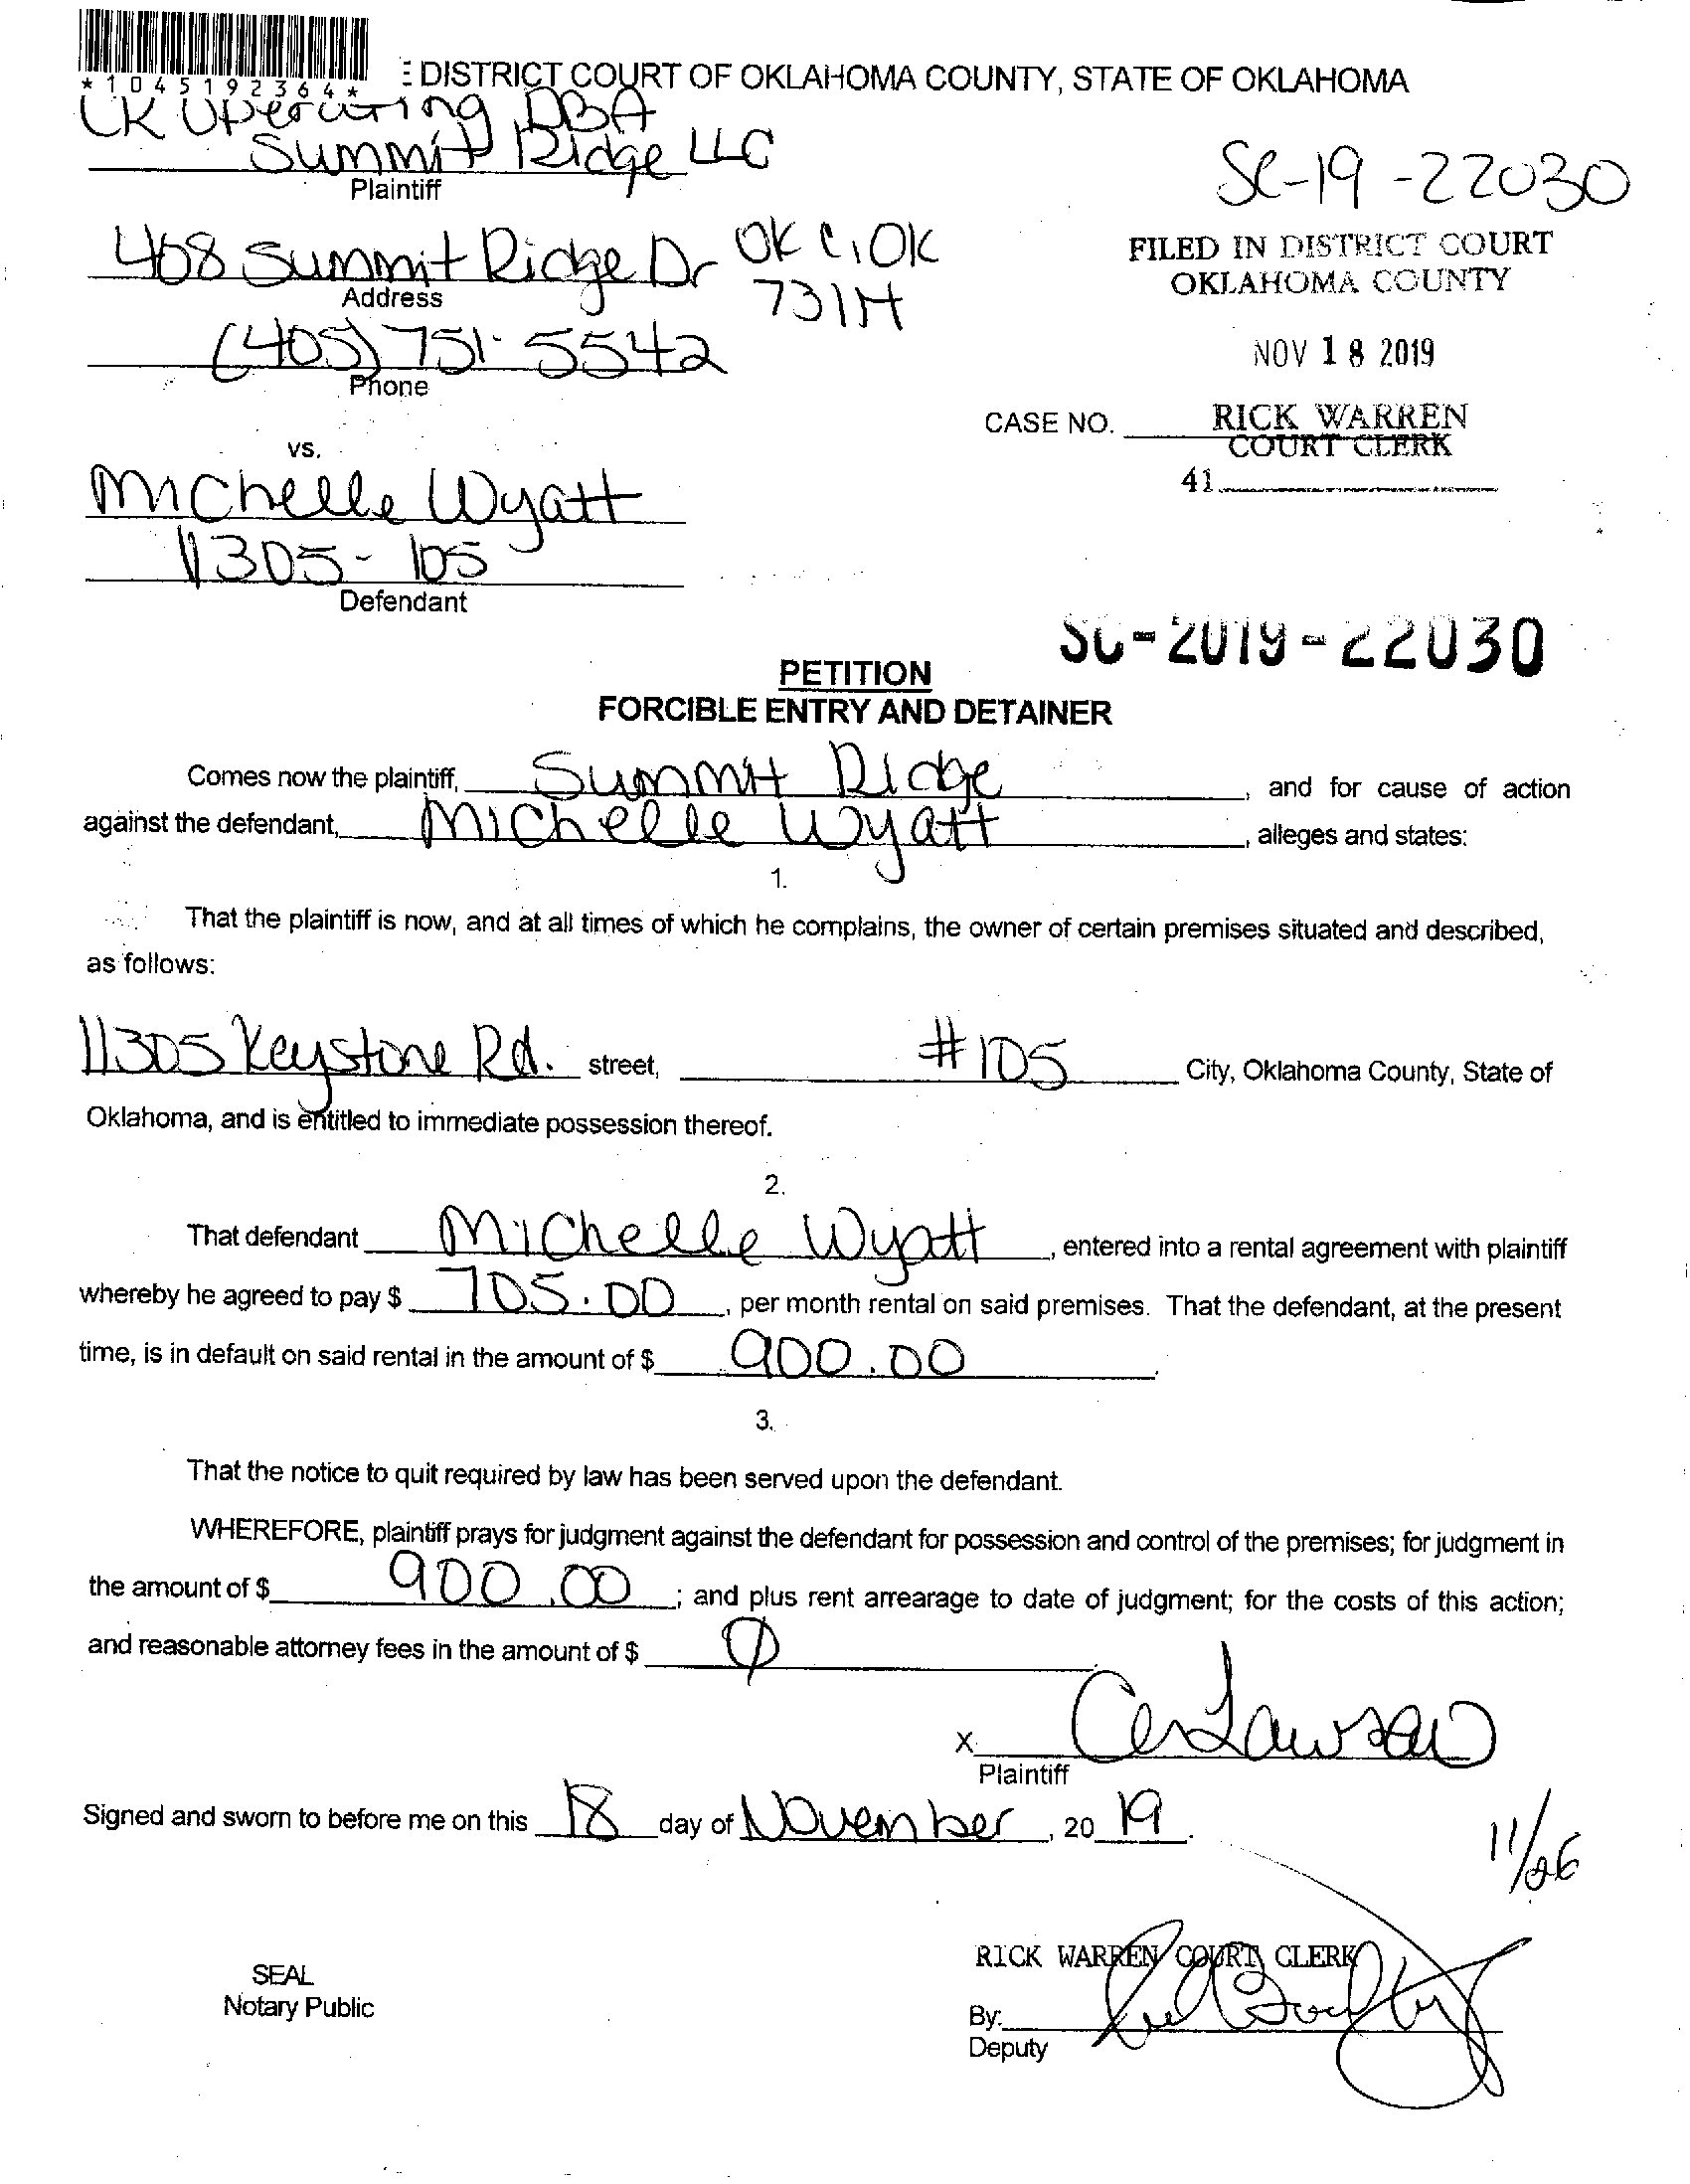 *1045192364*
E DISTRICT COURT OF OKLAHOMA COUNTY, STATE OF OKLAHOMA
LK Operating DBA
Summit Ridge LLC
Plaintiff
SC-19-22030
408 Summit Ridge Dr OKC, OK
73114
Address
FILED IN DISTRICT COURT
OKLAHOMA COUNTY
(405) 751-5542
Phone
NOV 18 2019
CASE NO.
RICK WARREN
COURT CLERK
41
vs.
Michelle Wyatt
11305-105
Defendant
SC-2019-22030
PETITION
FORCIBLE ENTRY AND DETAINER
Comes now the plaintiff, Summit Ridge, and for cause of action
against the defendant, Michelle Wyatt, alleges and states:
1.
That the plaintiff is now, and at all times of which he complains, the owner of certain premises situated and described,
as follows:
11305 Keystone Rd. street, #105 City, Oklahoma County, State of
Oklahoma, and is entitled to immediate possession thereof.
2.
That defendant Michelle Wyatt, entered into a rental agreement with plaintiff
whereby he agreed to pay $ 705.00, per month rental on said premises. That the defendant, at the present
time, is in default on said rental in the amount of $ 900.00.
3.
That the notice to quit required by law has been served upon the defendant.
WHEREFORE, plaintiff prays for judgment against the defendant for possession and control of the premises; for judgment in
the amount of $ 900.00; and plus rent arrearage to date of judgment; for the costs of this action;
and reasonable attorney fees in the amount of $ 0.
X
Plaintiff
Signed and sworn to before me on this 18 day of November, 20 19.
11/26
SEAL
Notary Public
RICK WARREN COURT CLERK
By:
Deputy